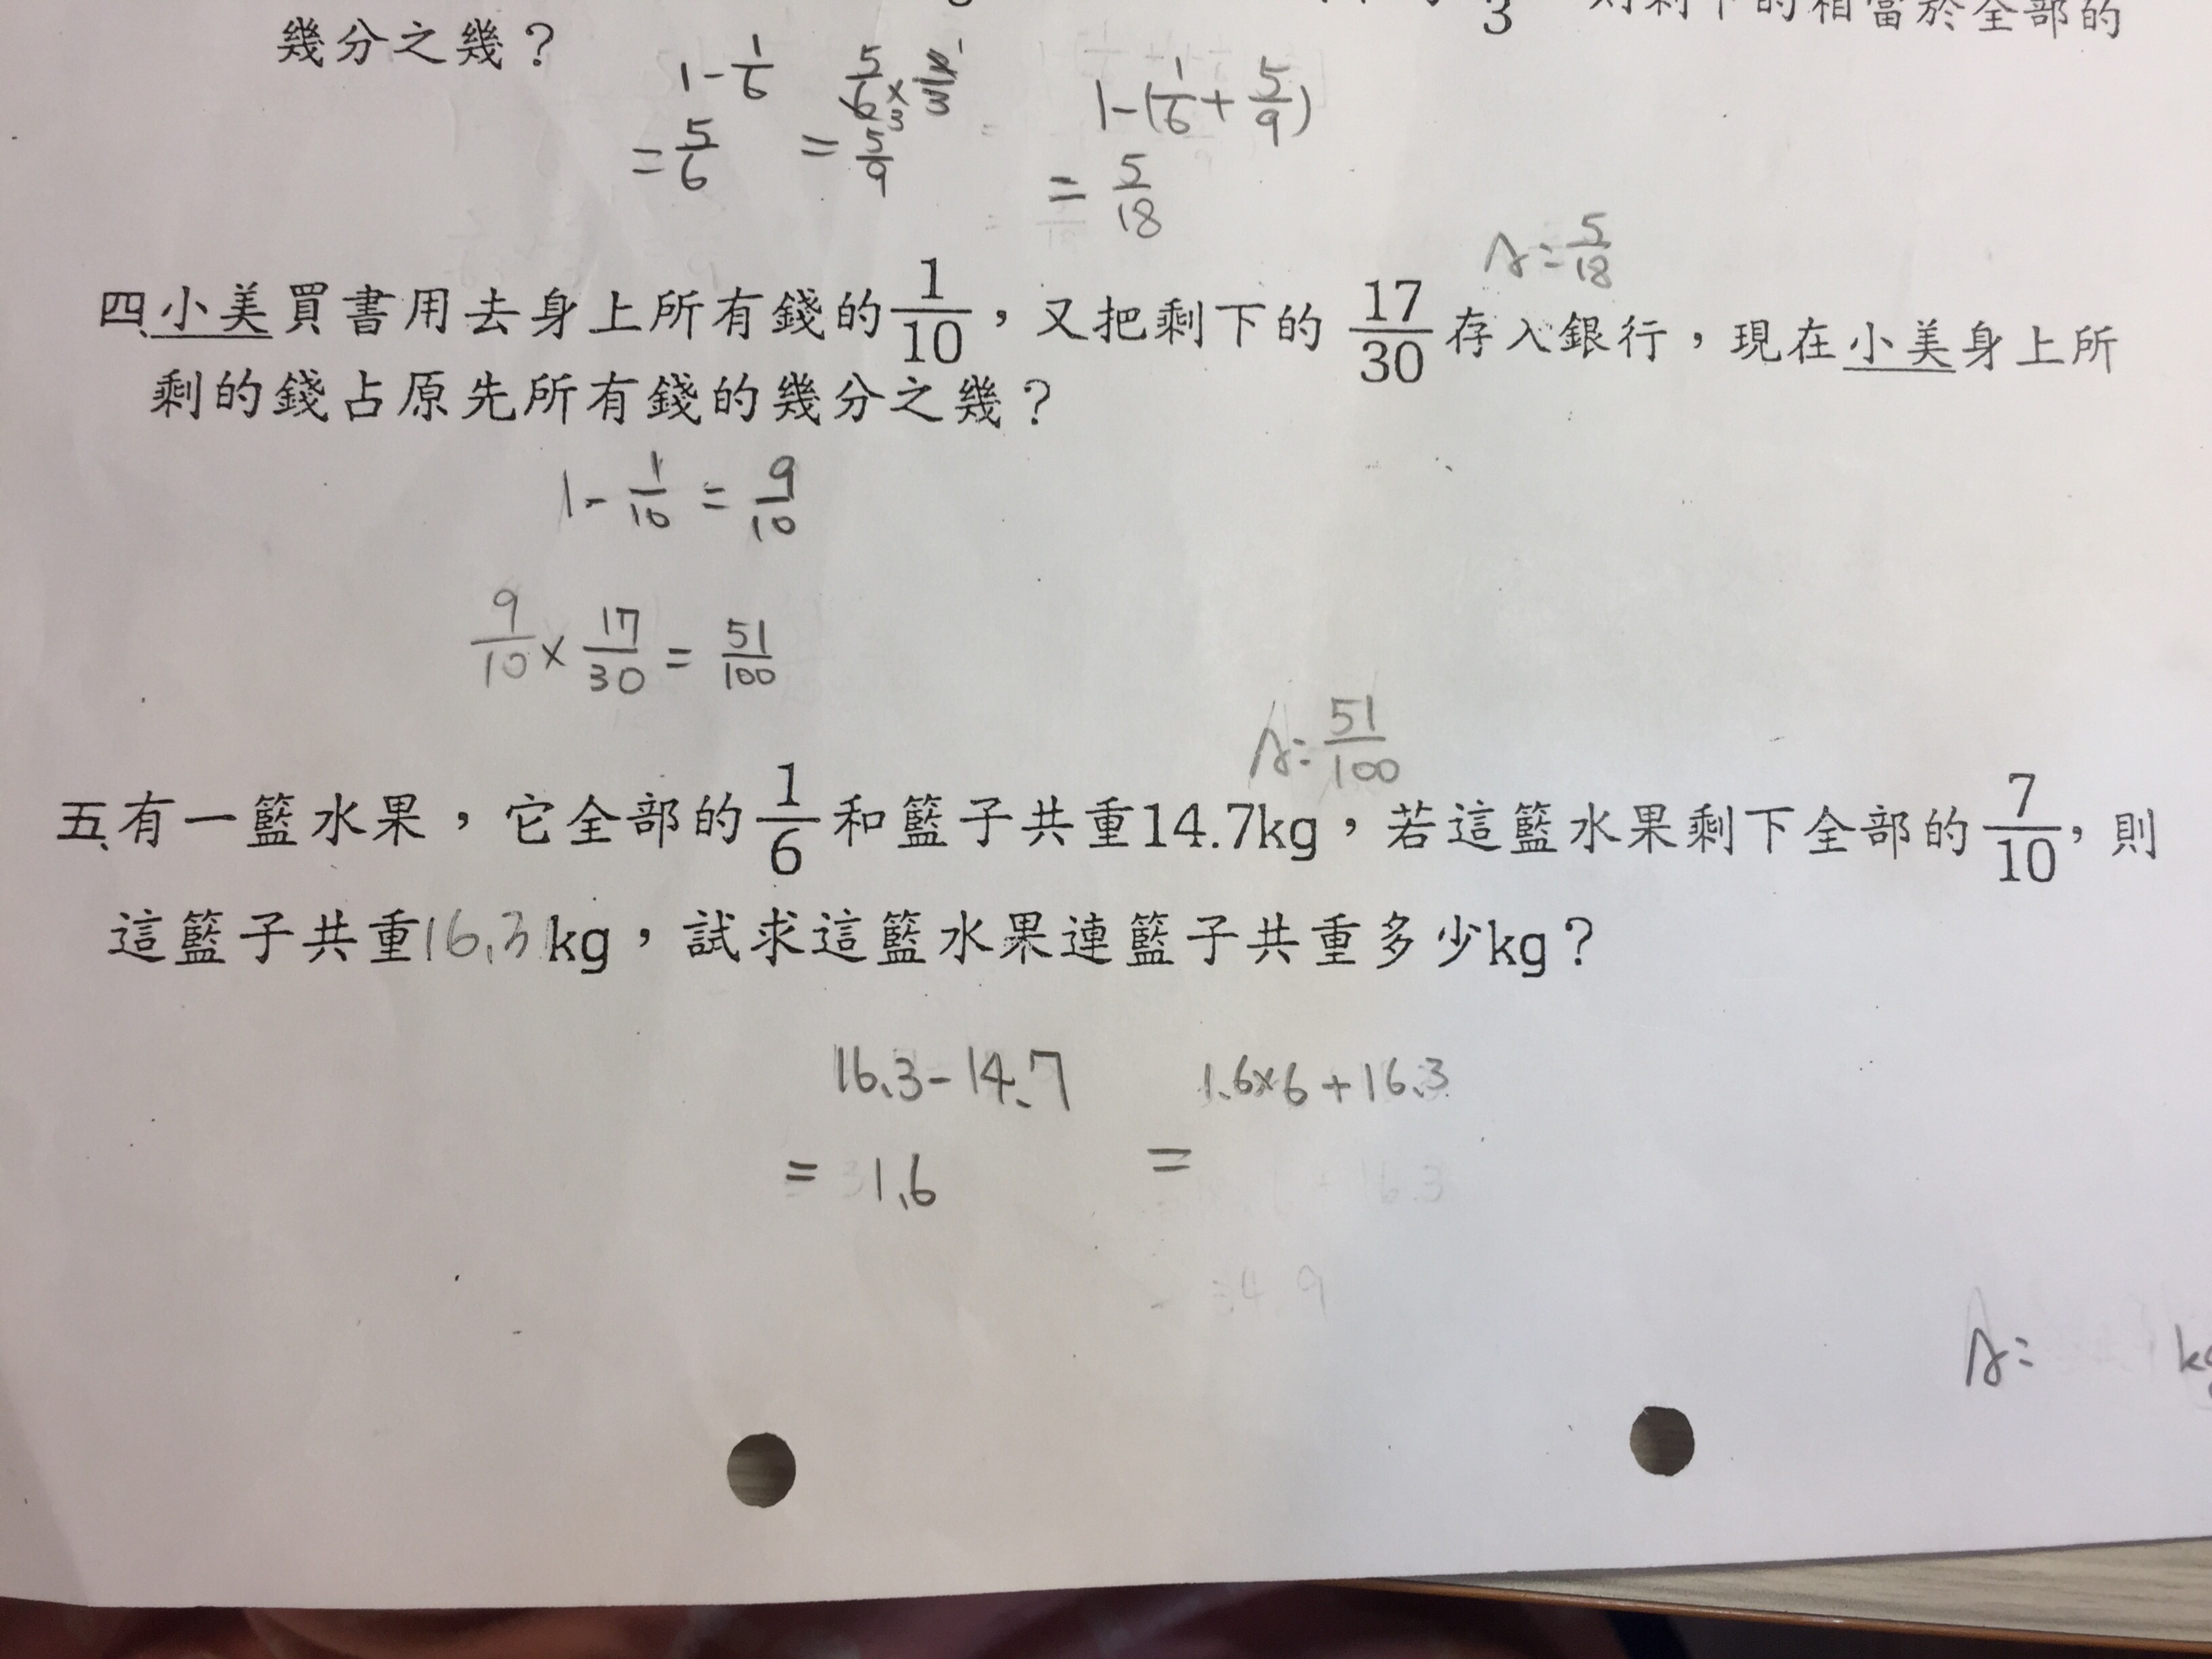 3 則剩下的相當於全部的
幾分之幾？
1-1/6 5/6×2/3 1-(1/6+5/9)
=5/6 =5/9 =5/18
A:5/18
四、小美買書用去身上所有錢的1/10，又把剩下的17/30存入銀行，現在小美身上所
剩的錢占原先所有錢的幾分之幾？
1-1/10=9/10
9/10×17/30=51/100
A:51/100
五、有一籃水果，它全部的1/6和籃子共重14.7kg，若這籃水果剩下全部的7/10，則
這籃子共重16.3kg，試求這籃水果連籃子共重多少kg？
16.3-14.7 1.6×6+16.3
=1.6 =
A: kg